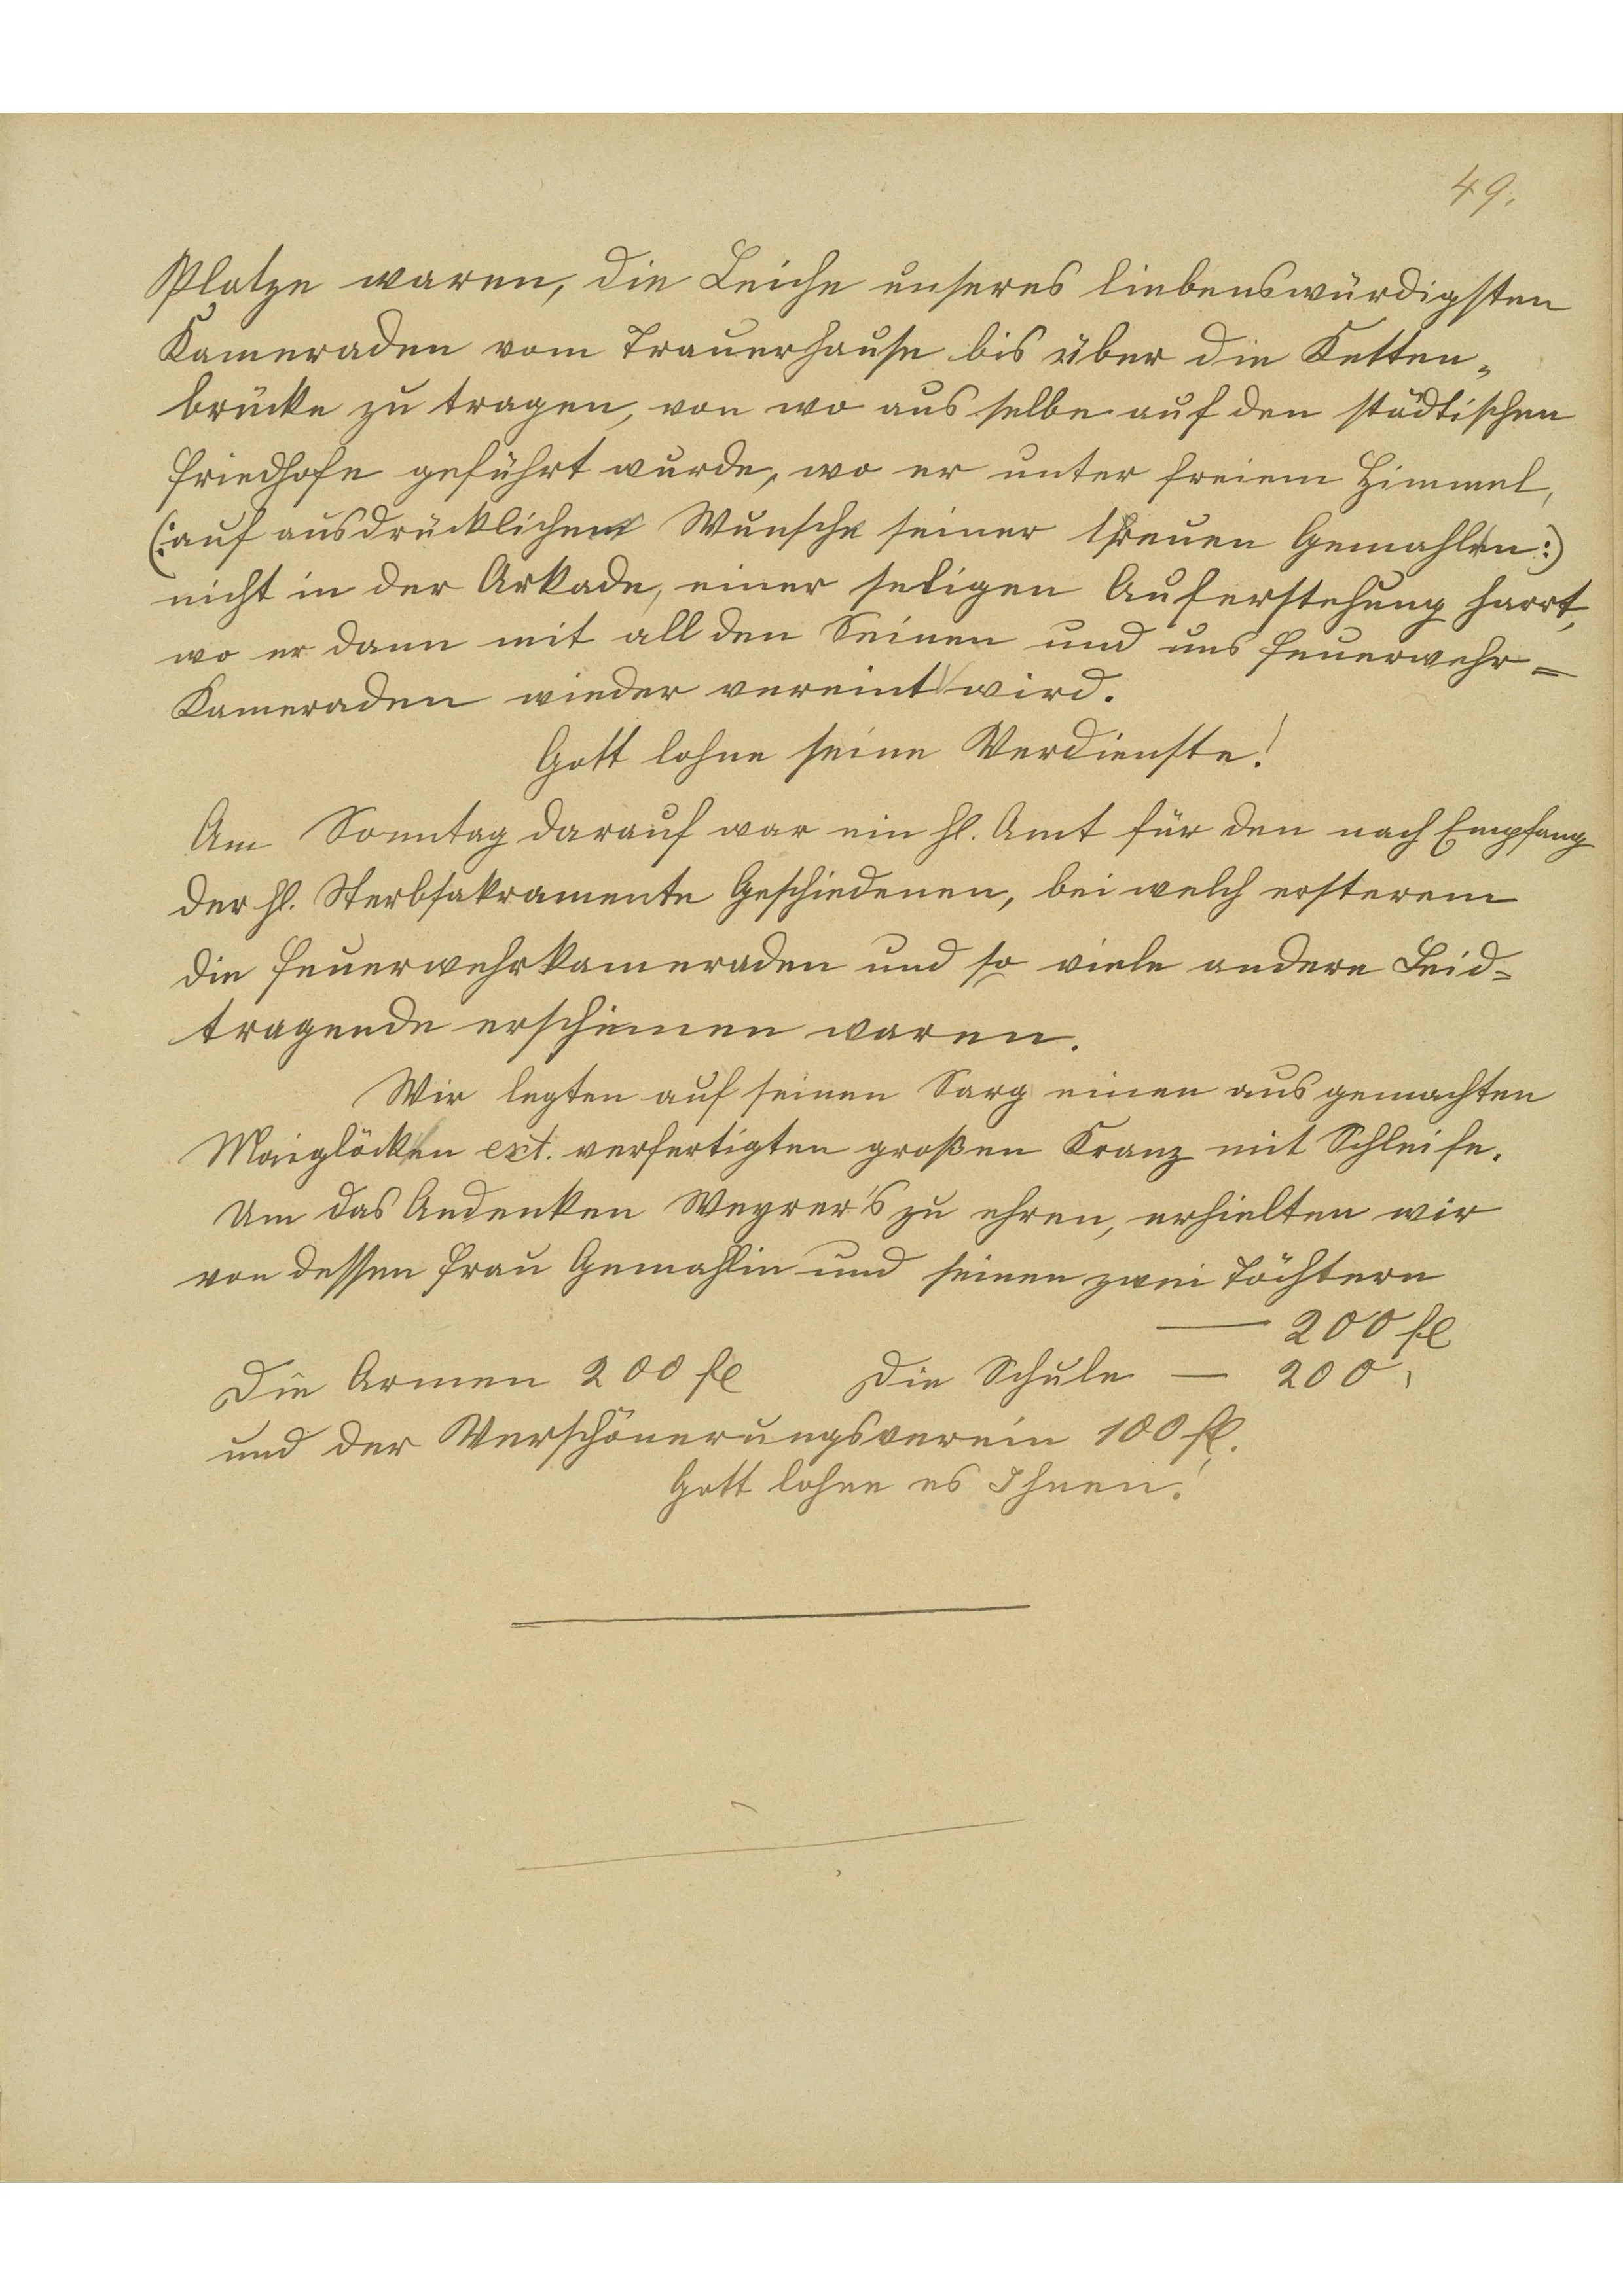 49.
Platze waren, die Leiche unseres liebenswürdigsten
Kameraden vom Trauerhause bis über die Ketten-
brücke zu tragen, von wo aus selbe auf den städtischen
Friedhofe geführt wurde, wo er unter freiem Himmel,
(: auf ausdrücklichen Wunsche seiner treuen Gemahlin :)
nicht in der Arkade, einer seligen Auferstehung harrt,
wo er dann mit all den Seinen und uns Feuerwehr=
Kameraden wieder vereint wird.
Gott lohne seine Verdienste!
Am Sonntag darauf war ein hl. Amt für den nach Empfang
der hl. Sterbsakramente Geschiedenen, bei welch ersterem
die Feuerwehrkameraden und so viele andere Leid=
tragende erschienen waren.
Wir legten auf seinen Sarg einen aus gemachten
Maiglöcken ext. verfertigten großen Kranz mit Schleife.
Um das Andenken Weyrer's zu ehren, erhielten wir
von dessen Frau Gemahlin und seinen zwei Töchtern
— 200 fl
Die Armen 200 fl Die Schule — 200 "
und der Verschönerungsverein 100 fl.
Gott lohne es Ihnen!